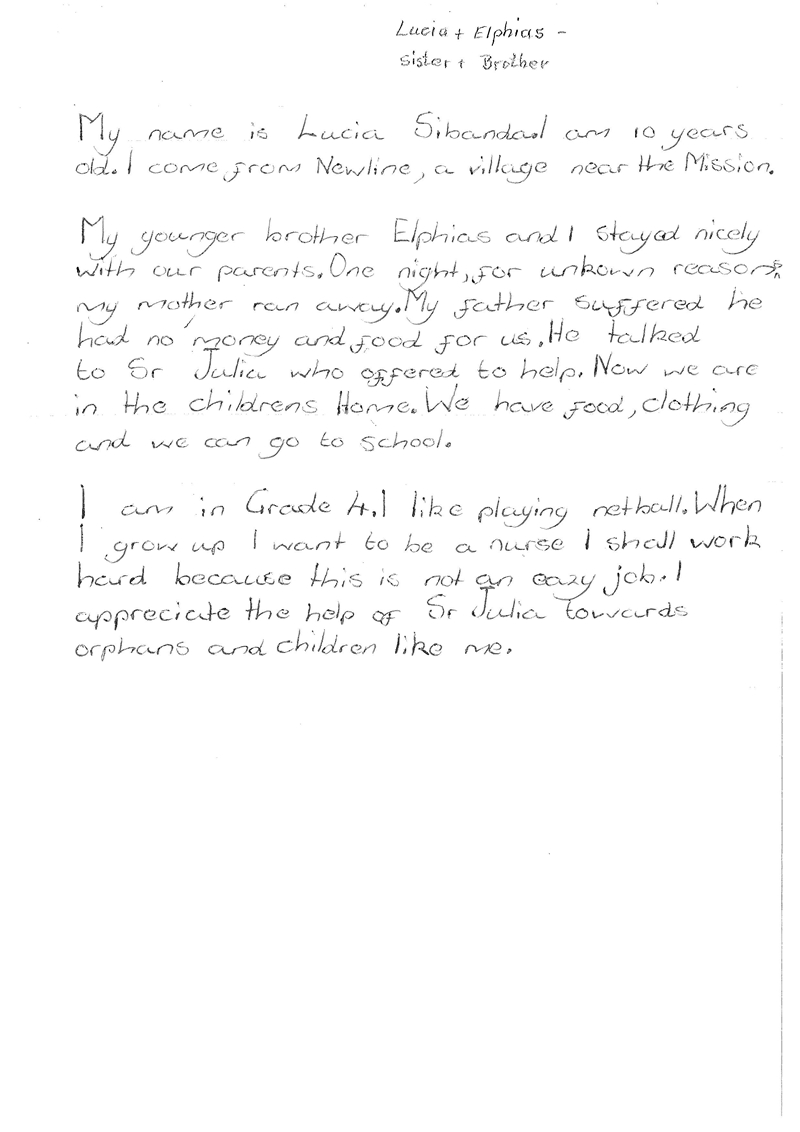 Lucia + Elphias -
Sister + Brother
My name is Lucia Sibanda.I am 10 years
old. I come from Newline, a village near the Mission.
My younger brother Elphias and I stayed nicely
with our parents. One night, for unkown reasons
my mother ran away. My father suffered he
had no money and food for us. He talked
to Sr Julia who offered to help. Now we are
in the childrens Home. We have food, clothing
and we can go to school.
I am in Grade 4. I like playing netball. When
I grow up I want to be a nurse I shall work
hard because this is not an eazy job. I
appreciate the help of Sr Julia towards
orphans and children like me.